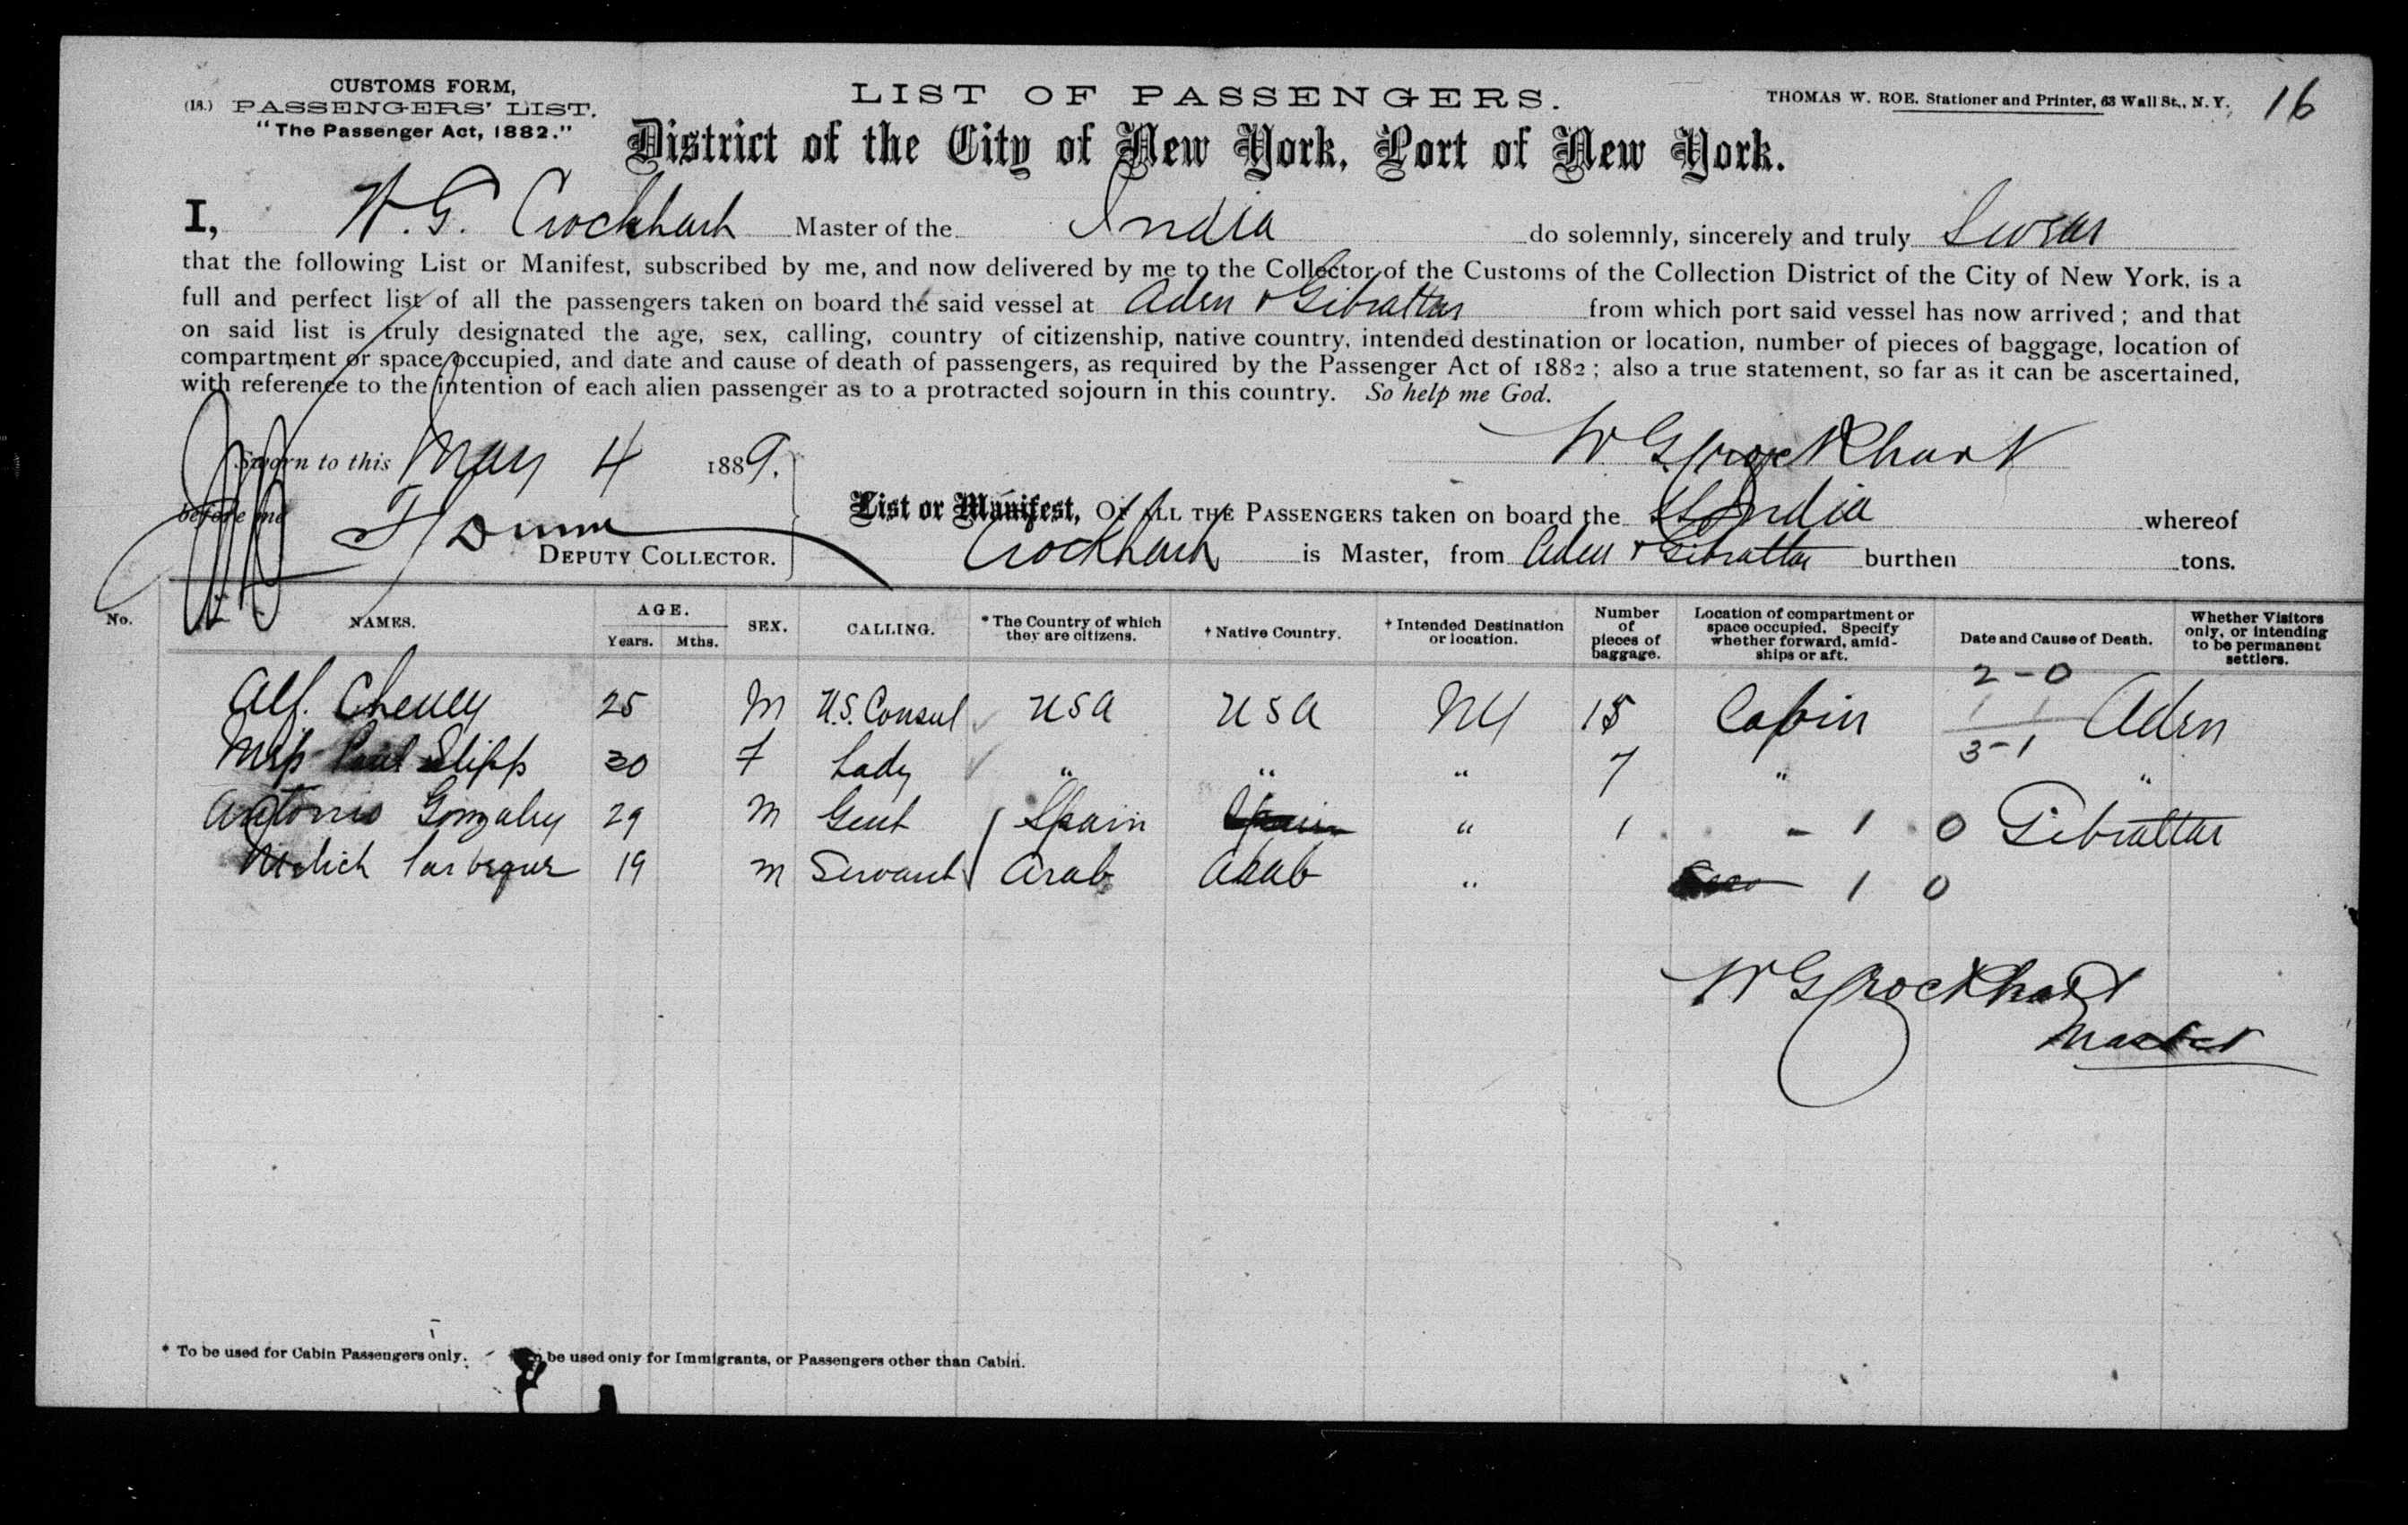 CUSTOMS FORM,
(18.) PASSENGERS' LIST.
"The Passenger Act, 1882."
LIST OF PASSENGERS.
THOMAS W. ROE, Stationer and Printer, 63 Wall St., N. Y.
16
District of the City of New York, Port of New York.
I, W. G. Crockhart Master of the India do solemnly, sincerely and truly Swear
that the following List or Manifest, subscribed by me, and now delivered by me to the Collector of the Customs of the Collection District of the City of New York, is a
full and perfect list of all the passengers taken on board the said vessel at Aden & Gibraltar from which port said vessel has now arrived; and that
on said list is truly designated the age, sex, calling, country of citizenship, native country, intended destination or location, number of pieces of baggage, location of
compartment or space occupied, and date and cause of death of passengers, as required by the Passenger Act of 1882; also a true statement, so far as it can be ascertained,
with reference to the intention of each alien passenger as to a protracted sojourn in this country. So help me God.
W G Crockhart
Sworn to this May 4 1889.
before me
DEPUTY COLLECTOR.
List or Manifest, OF ALL THE PASSENGERS taken on board the SS India whereof
Crockhart is Master, from Aden & Gibraltar burthen tons.
No. NAMES. AGE. Years. Mths. SEX. CALLING. *The Country of which they are citizens. †Native Country. †Intended Destination or location. Number of pieces of baggage. Location of compartment or space occupied. Specify whether forward, amidships or aft. Date and Cause of Death. Whether Visitors only, or intending to be permanent settlers.
2-0
Alf. Cheney 25 M U.S. Consul USA USA NY 15 Cabin 1 1 Aden
3-1
Slipp 30 F Lady " " " 7 " "
Antonio Gonzaley 29 M Gent Spain Spain " 1 - 1 0 Gibraltar
19 M Servant Arab Arab " 1 0
W G Crockhart
Master
* To be used for Cabin Passengers only. be used only for Immigrants, or Passengers other than Cabin.